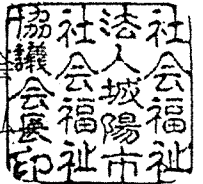 社会福祉
法人城陽市
社会福祉
協議会長印